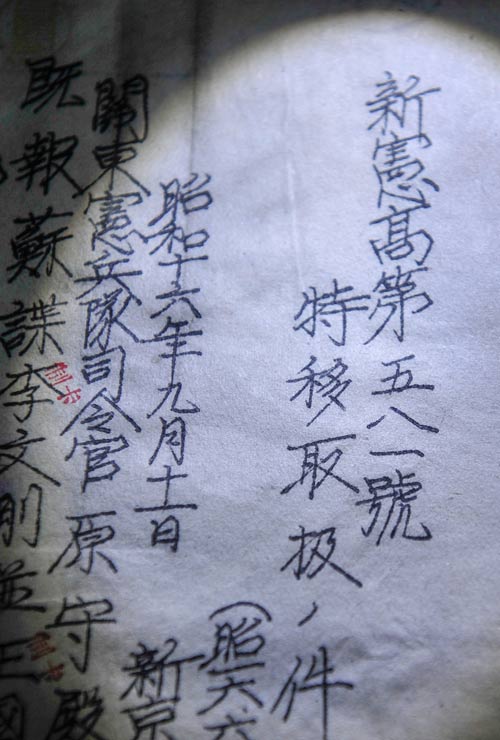 新憲高第五八一號
特移取扱ノ件
(昭一六六
昭和十六年九月十一日
新京
關東憲兵隊司令官原守殿
既報蘇諜李文 並王國